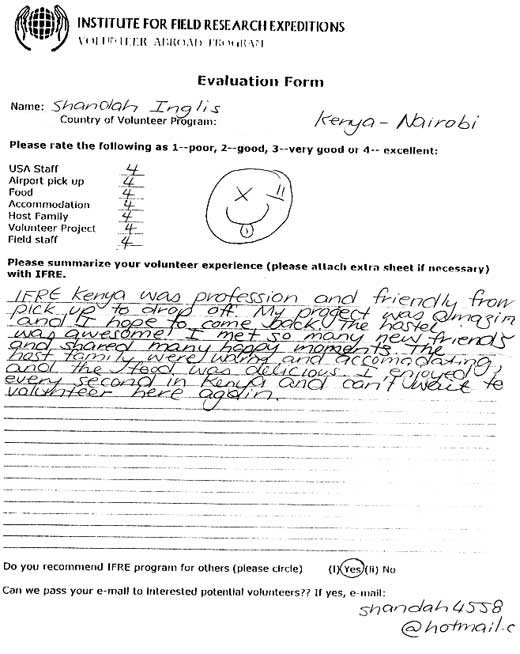 INSTITUTE FOR FIELD RESEARCH EXPEDITIONS
VOLUNTEER ABROAD PROGRAM
Evaluation Form
Name: Shandah Inglis
Country of Volunteer Program: Kenya - Nairobi
Please rate the following as 1--poor, 2--good, 3--very good or 4-- excellent:
USA Staff 4
Airport pick up 4
Food 4
Accommodation 4
Host Family 4
Volunteer Project 4
Field staff 4
Please summarize your volunteer experience (please attach extra sheet if necessary)
with IFRE.
IFRE Kenya was profession and friendly from
pick up to drop off. My project was amazin
and I hope to come back. The hostel
was awesome I met so many new friends
and shared many happy moments. The
host family were warm and accomodating
and the food was delicious. I enjoyed
every second in Kenya and can't wait to
volunteer here again.
Do you recommend IFRE program for others (please circle) (i) Yes (ii) No
Can we pass your e-mail to interested potential volunteers?? If yes, e-mail:
shandah4558
@hotmail.c